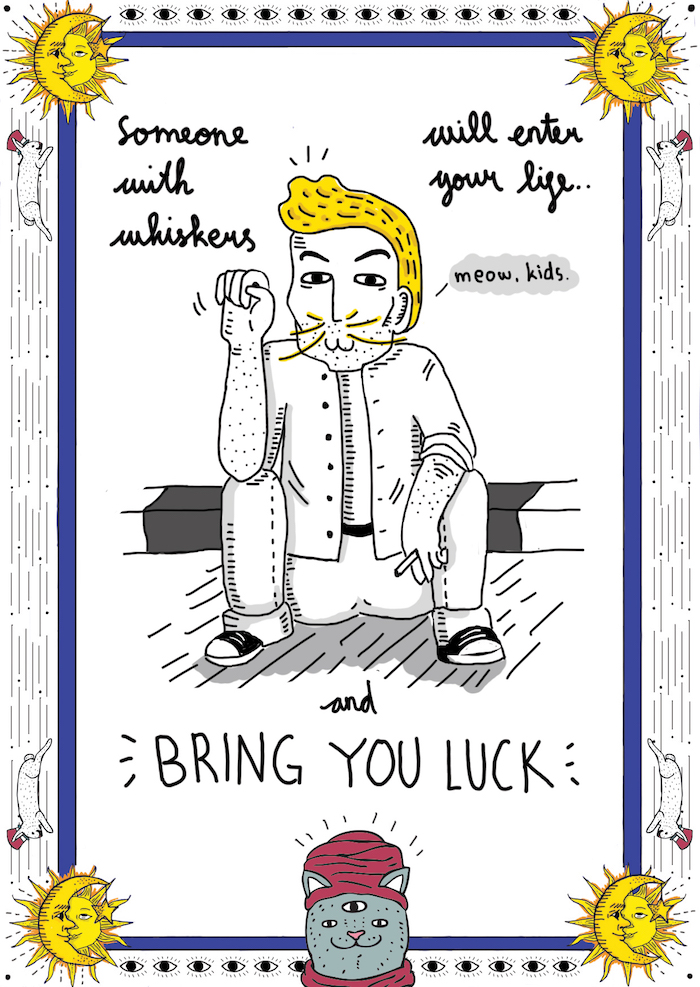 Someone
with
whiskers
will enter
your life..
meow, kids.
and
BRING YOU LUCK